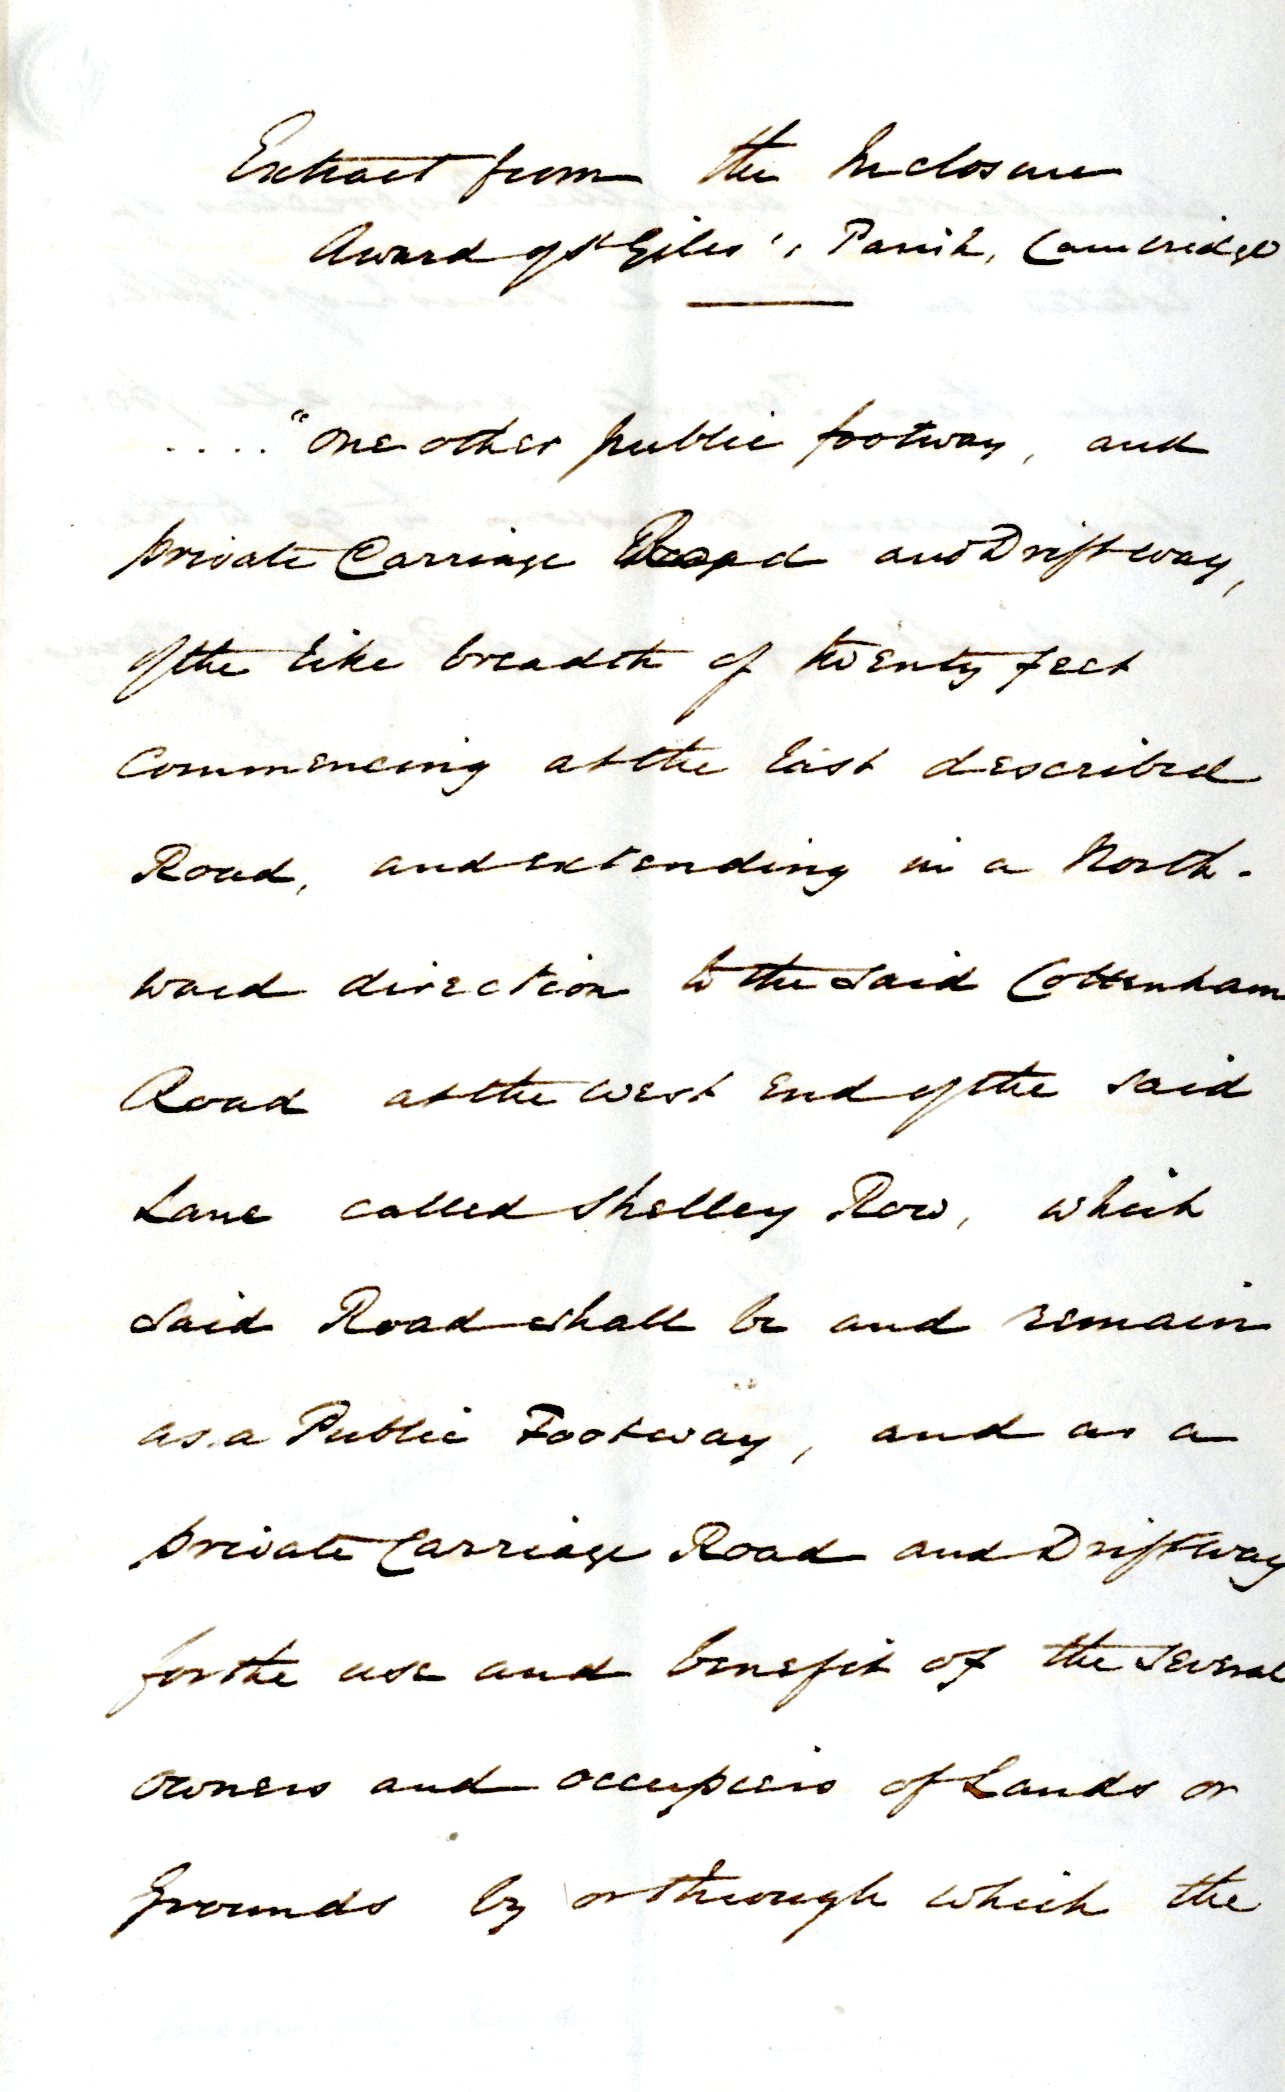 Extract from the Inclosure
Award of St Giles's Parish, Cambridge
...."one other public footway, and
private Carriage Road and Driftway,
of the like breadth of twenty feet
commencing at the last described
Road, and extending in a North-
ward direction to the said Cottenham
Road at the West End of the said
Lane called Shelley Row, which
said Road shall be and remain
as a Public Footway, and as a
private Carriage Road and Driftway
for the use and benefit of the several
owners and occupiers of Lands or
Grounds by or through which the